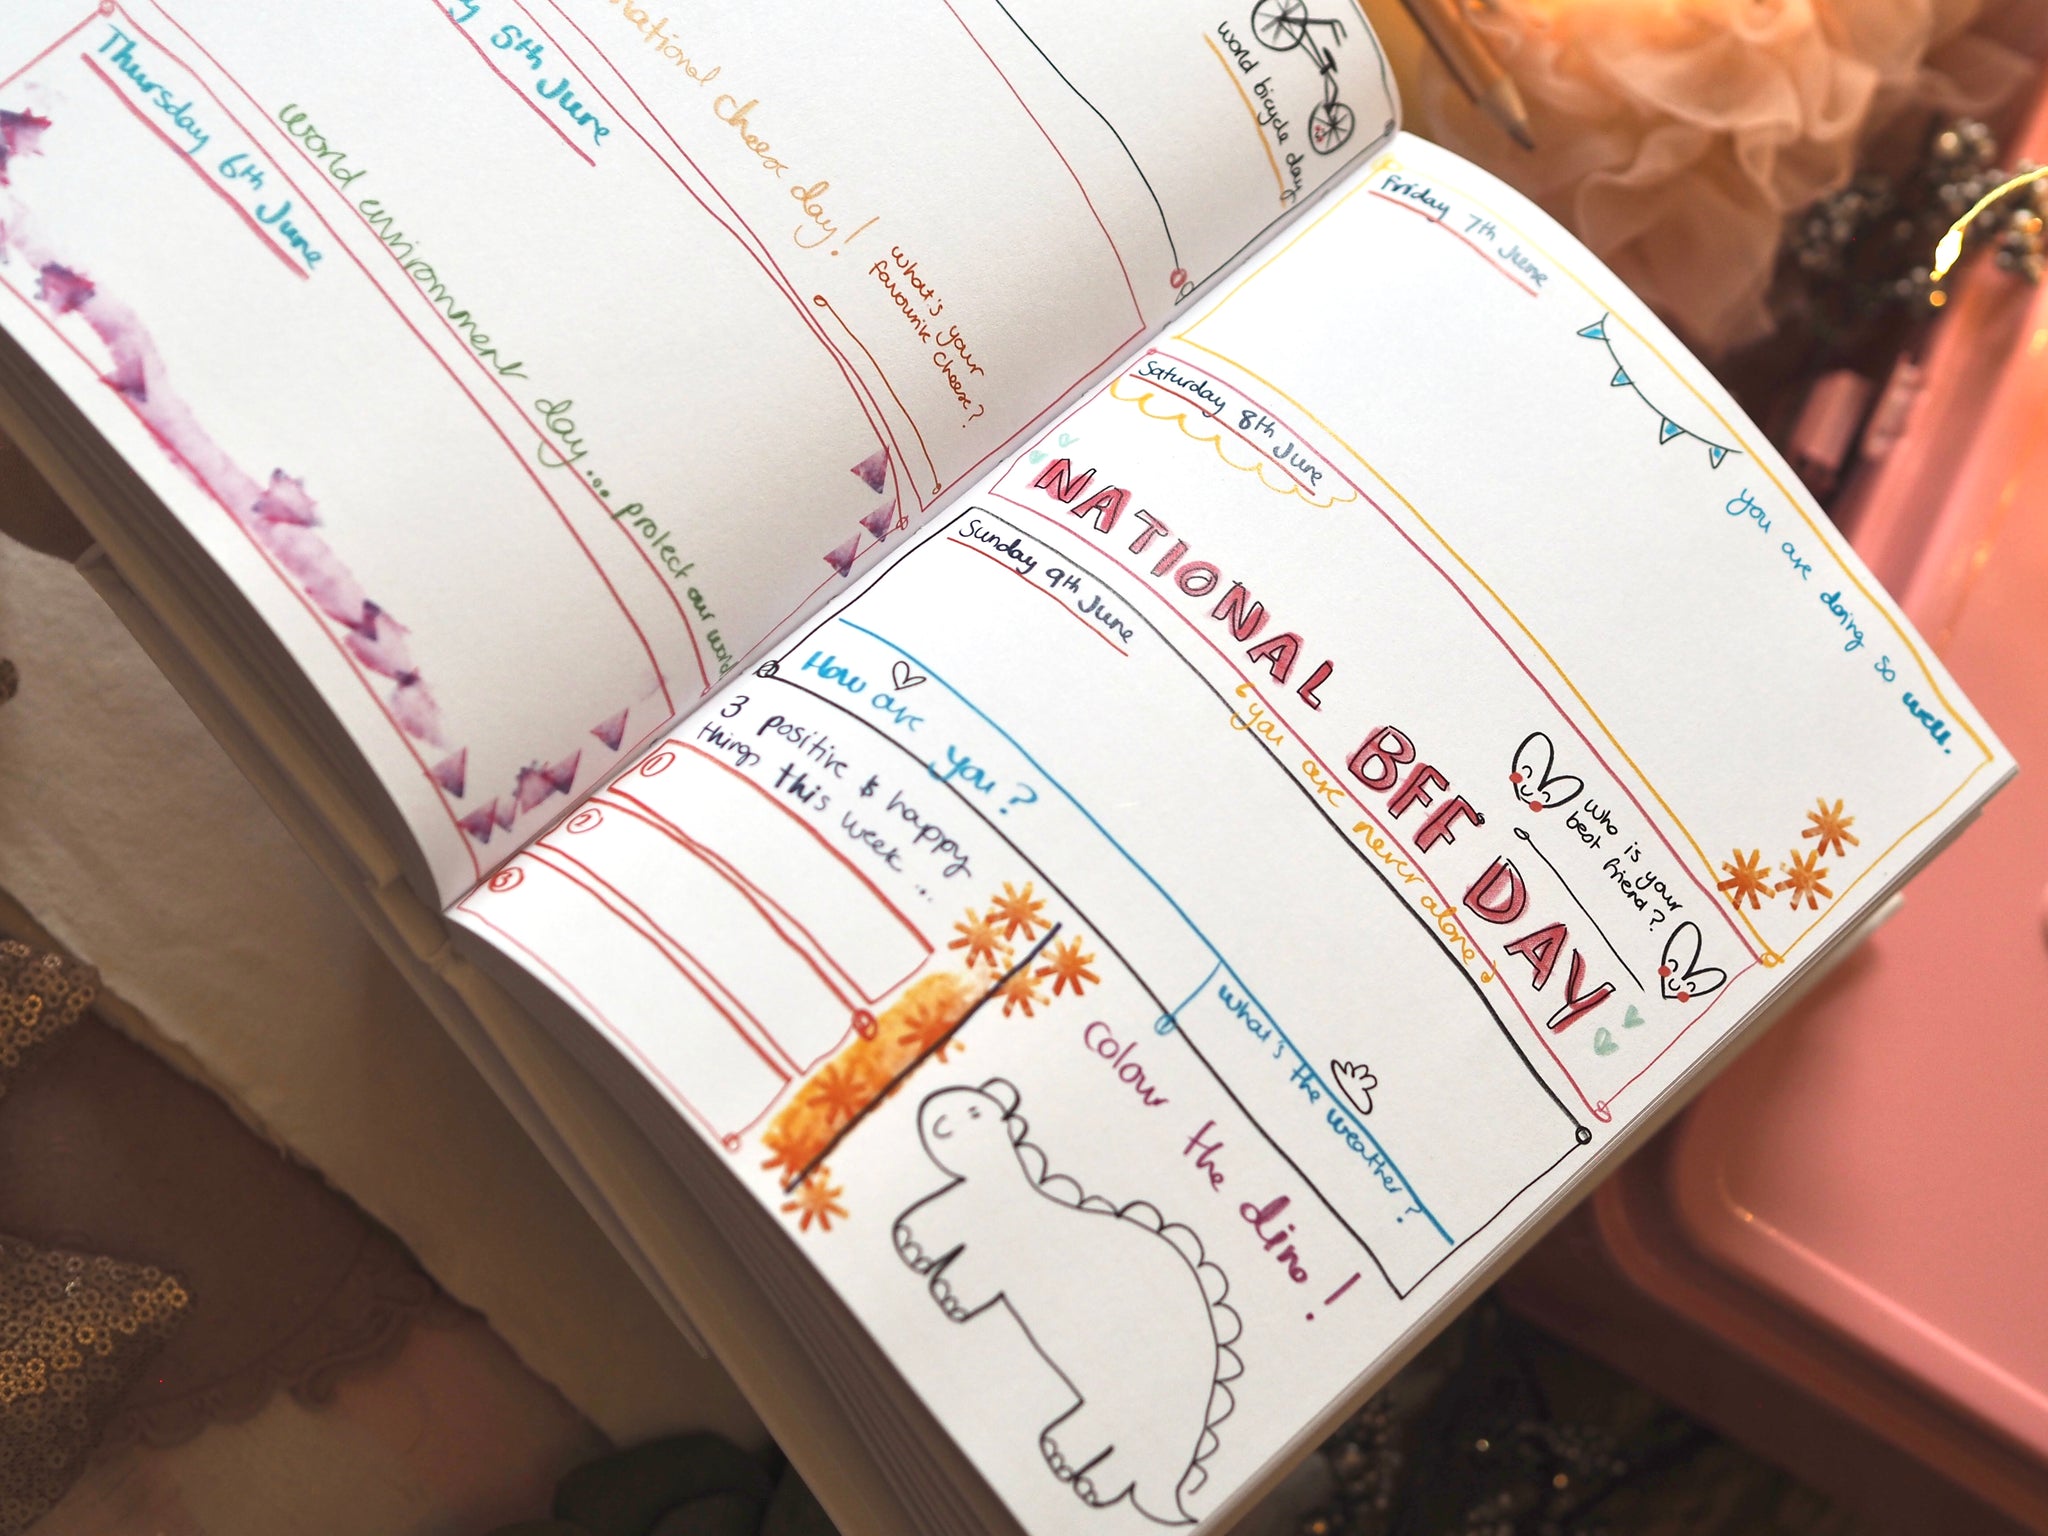 world bicycle day
5th June
national cheese day!
what's your
favourite cheese?
Thursday 6th June
world environment day... protect our world
Friday 7th June
you are doing so well.
Saturday 8th June
NATIONAL BFF DAY
who is your
best friend?
Sunday 9th June
you are never alone
How are you?
what's the weather?
3 positive & happy
things this week...
1
2
3
colour the dino!